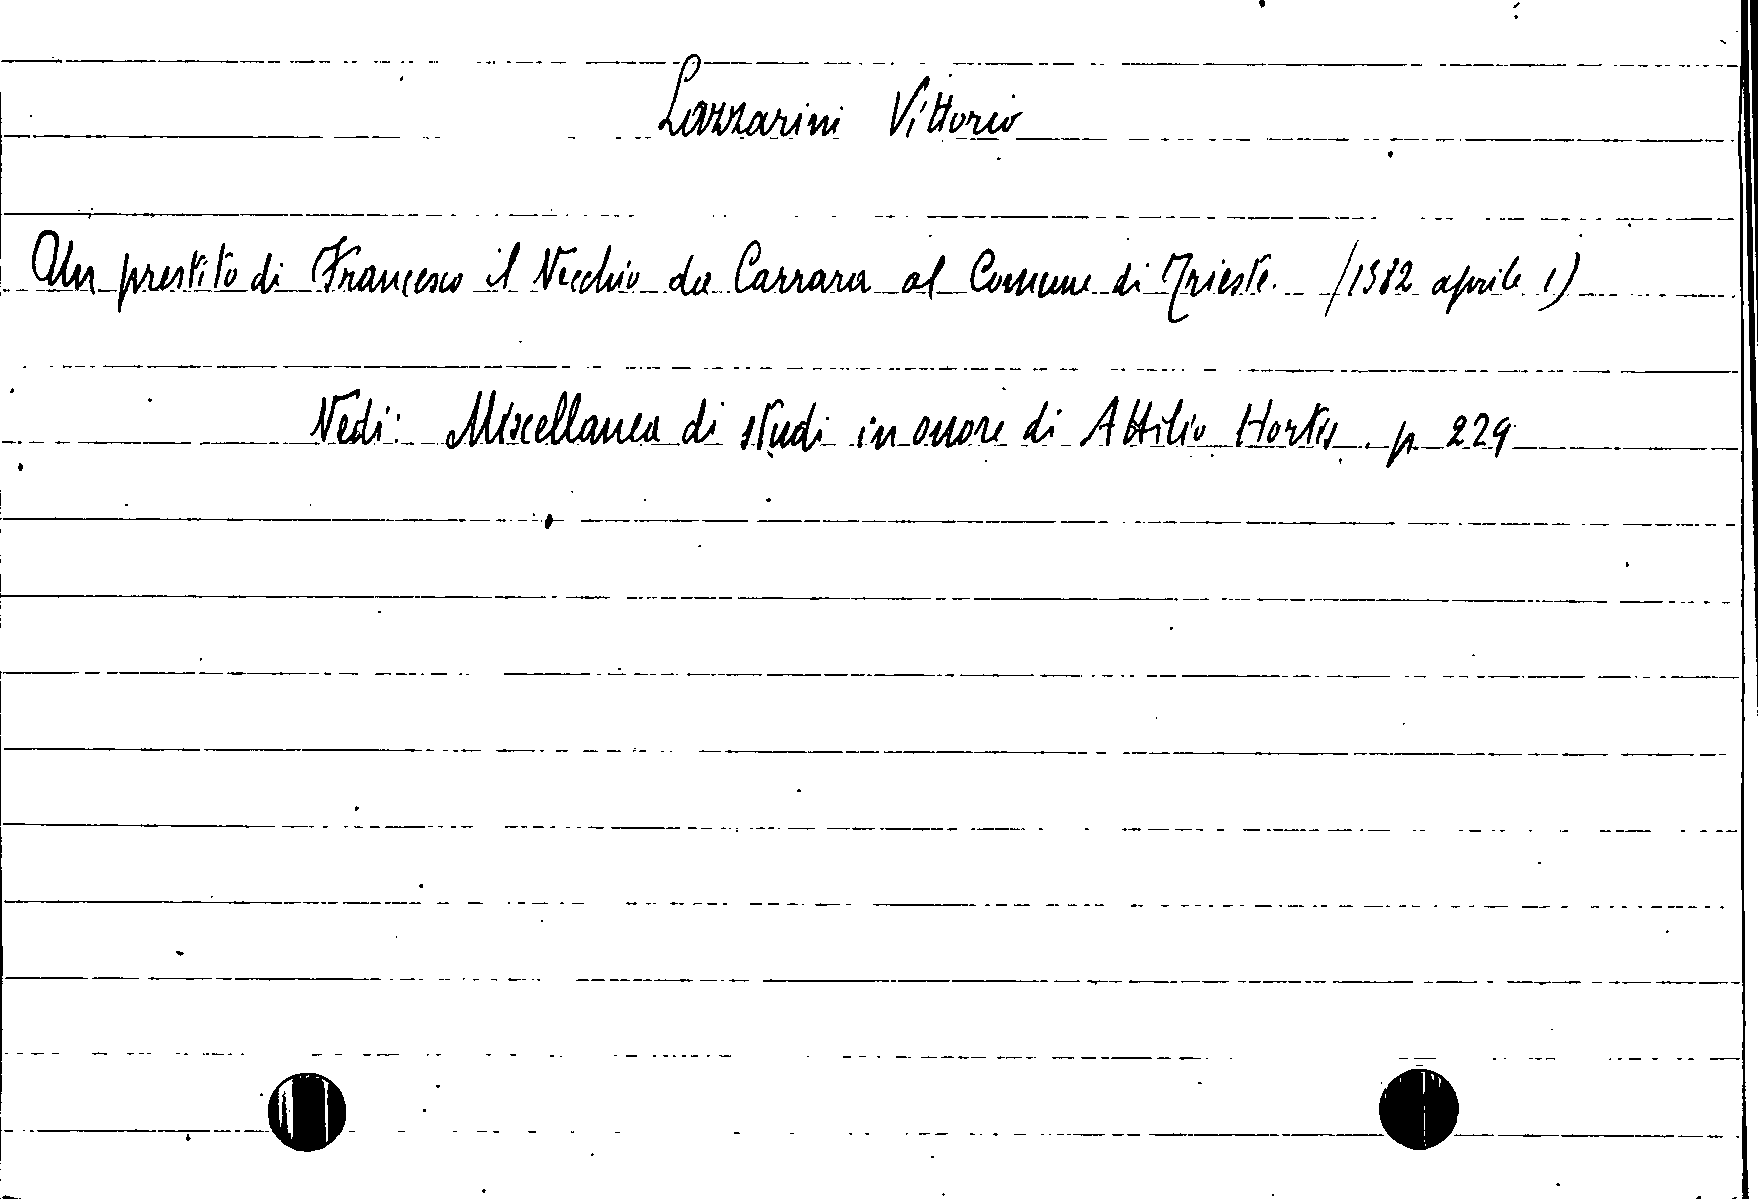 Lazzarini Vittorio
Un prestito di Francesco il Vecchio da Carrara al Comune di Trieste. (1382 aprile 1)
Vedi: Miscellanea di studi in onore di Attilio Hortis. p. 229